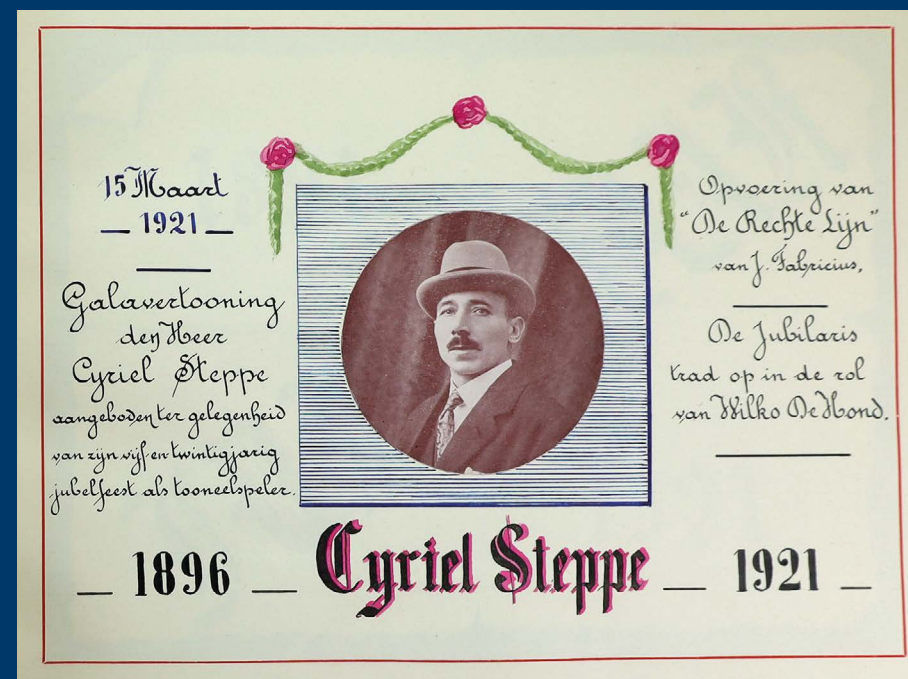 15 Maart
_ 1921 _
Galavertooning
den Heer
Cyriel Steppe
aangeboden ter gelegenheid
van zijn vijf en twintigjarig
jubelfeest als tooneelspeler.
Opvoering van
"De Rechte Lijn"
van J. Fabricius,
De Jubilaris
trad op in de rol
van Wilko De Hond.
_ 1896 _ Cyriel Steppe _ 1921 _